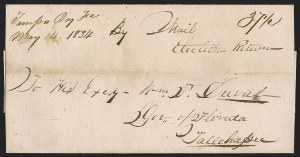 Tampa Bay Fa
May 14. 1834 By Mail 37½
Election Return
To His Excy Wm P. Duval
Gov. of Florida
Talehassee